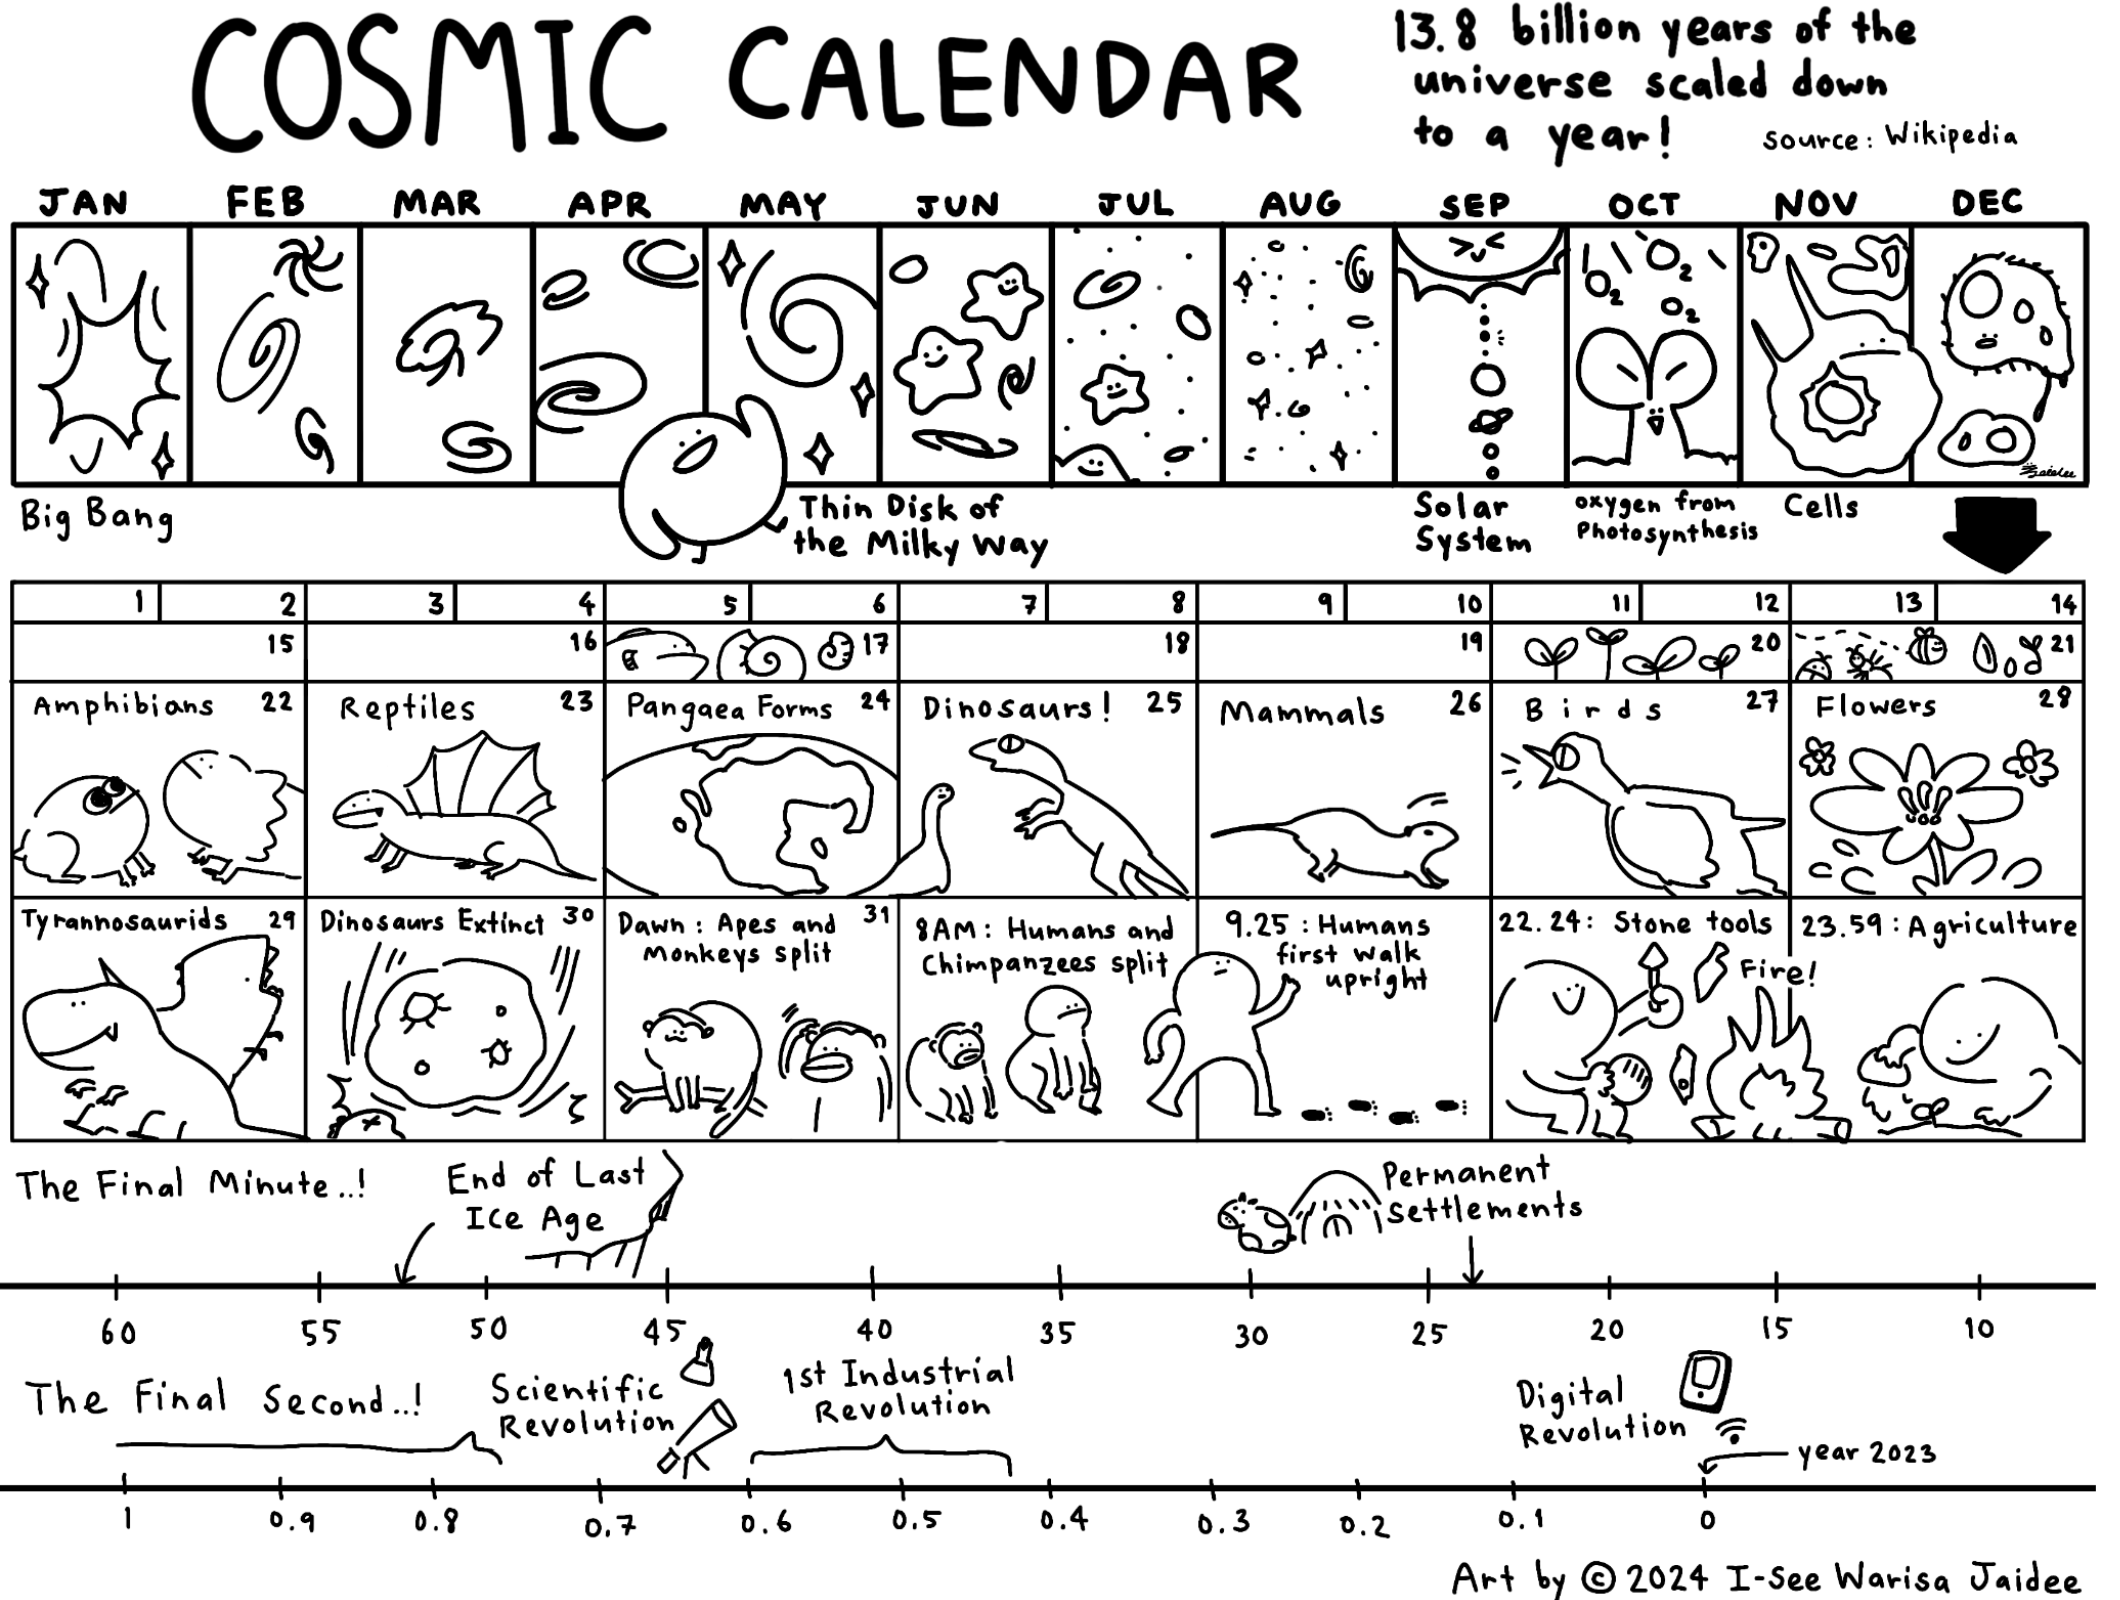 COSMIC CALENDAR
13.8 billion years of the
universe scaled down
to a year!
source: Wikipedia
JAN FEB MAR APR MAY JUN JUL AUG SEP OCT NOV DEC
O2
O2
O2
Big Bang
Thin Disk of
the Milky Way
Solar
System
oxygen from
Photosynthesis
Cells
1 2 3 4 5 6 7 8 9 10 11 12 13 14
15 16 17 18 19 20 21
Amphibians 22
Reptiles 23
Pangaea Forms 24
Dinosaurs! 25
Mammals 26
Birds 27
Flowers 28
Tyrannosaurids 29
Dinosaurs Extinct 30
Dawn: Apes and 31
Monkeys split
8AM: Humans and
Chimpanzees split
9.25: Humans
first walk
upright
22.24: Stone tools
Fire!
23.59: Agriculture
The Final Minute..!
End of Last
Ice Age
Permanent
Settlements
60 55 50 45 40 35 30 25 20 15 10
The Final Second..!
Scientific
Revolution
1st Industrial
Revolution
Digital
Revolution
year 2023
1 0.9 0.8 0.7 0.6 0.5 0.4 0.3 0.2 0.1 0
Art by © 2024 I-See Warisa Jaidee